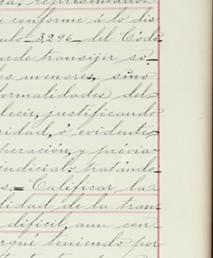 representarlos
conforme á lo dis
culo 3,296 del Códi
uede transijir so-
los menores, sino
formalidades del
decir, justificando
ridad, ó evidente
peración, y prévia
judicial, tratándo
s. Calificar la
lidad de la tran
difícil, aun con-
rqué teniendo por